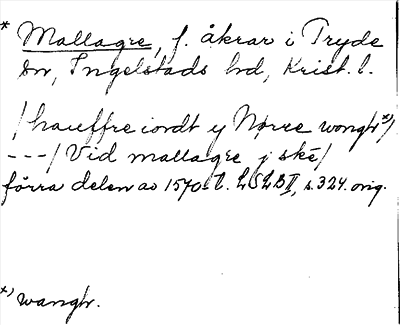 * Mallagre, f. åkrar i Tryde
sn, Ingelstads hd, Krist. l.
/hauffre iordt y Nørre wongh*)
---/ Vid mallagre j ské/
förra delen av 1570-t. LSLB II, s. 324. orig.
*) wangh.